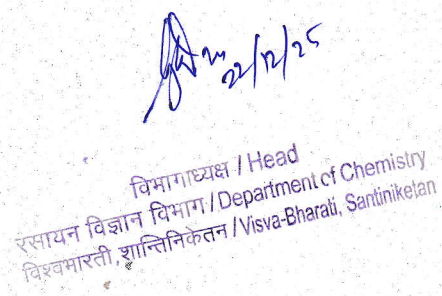 22/12/25
विभागाध्यक्ष / Head
रसायन विज्ञान विभाग / Department of Chemistry
विश्वभारती, शान्तिनिकेतन / Visva-Bharati, Santiniketan